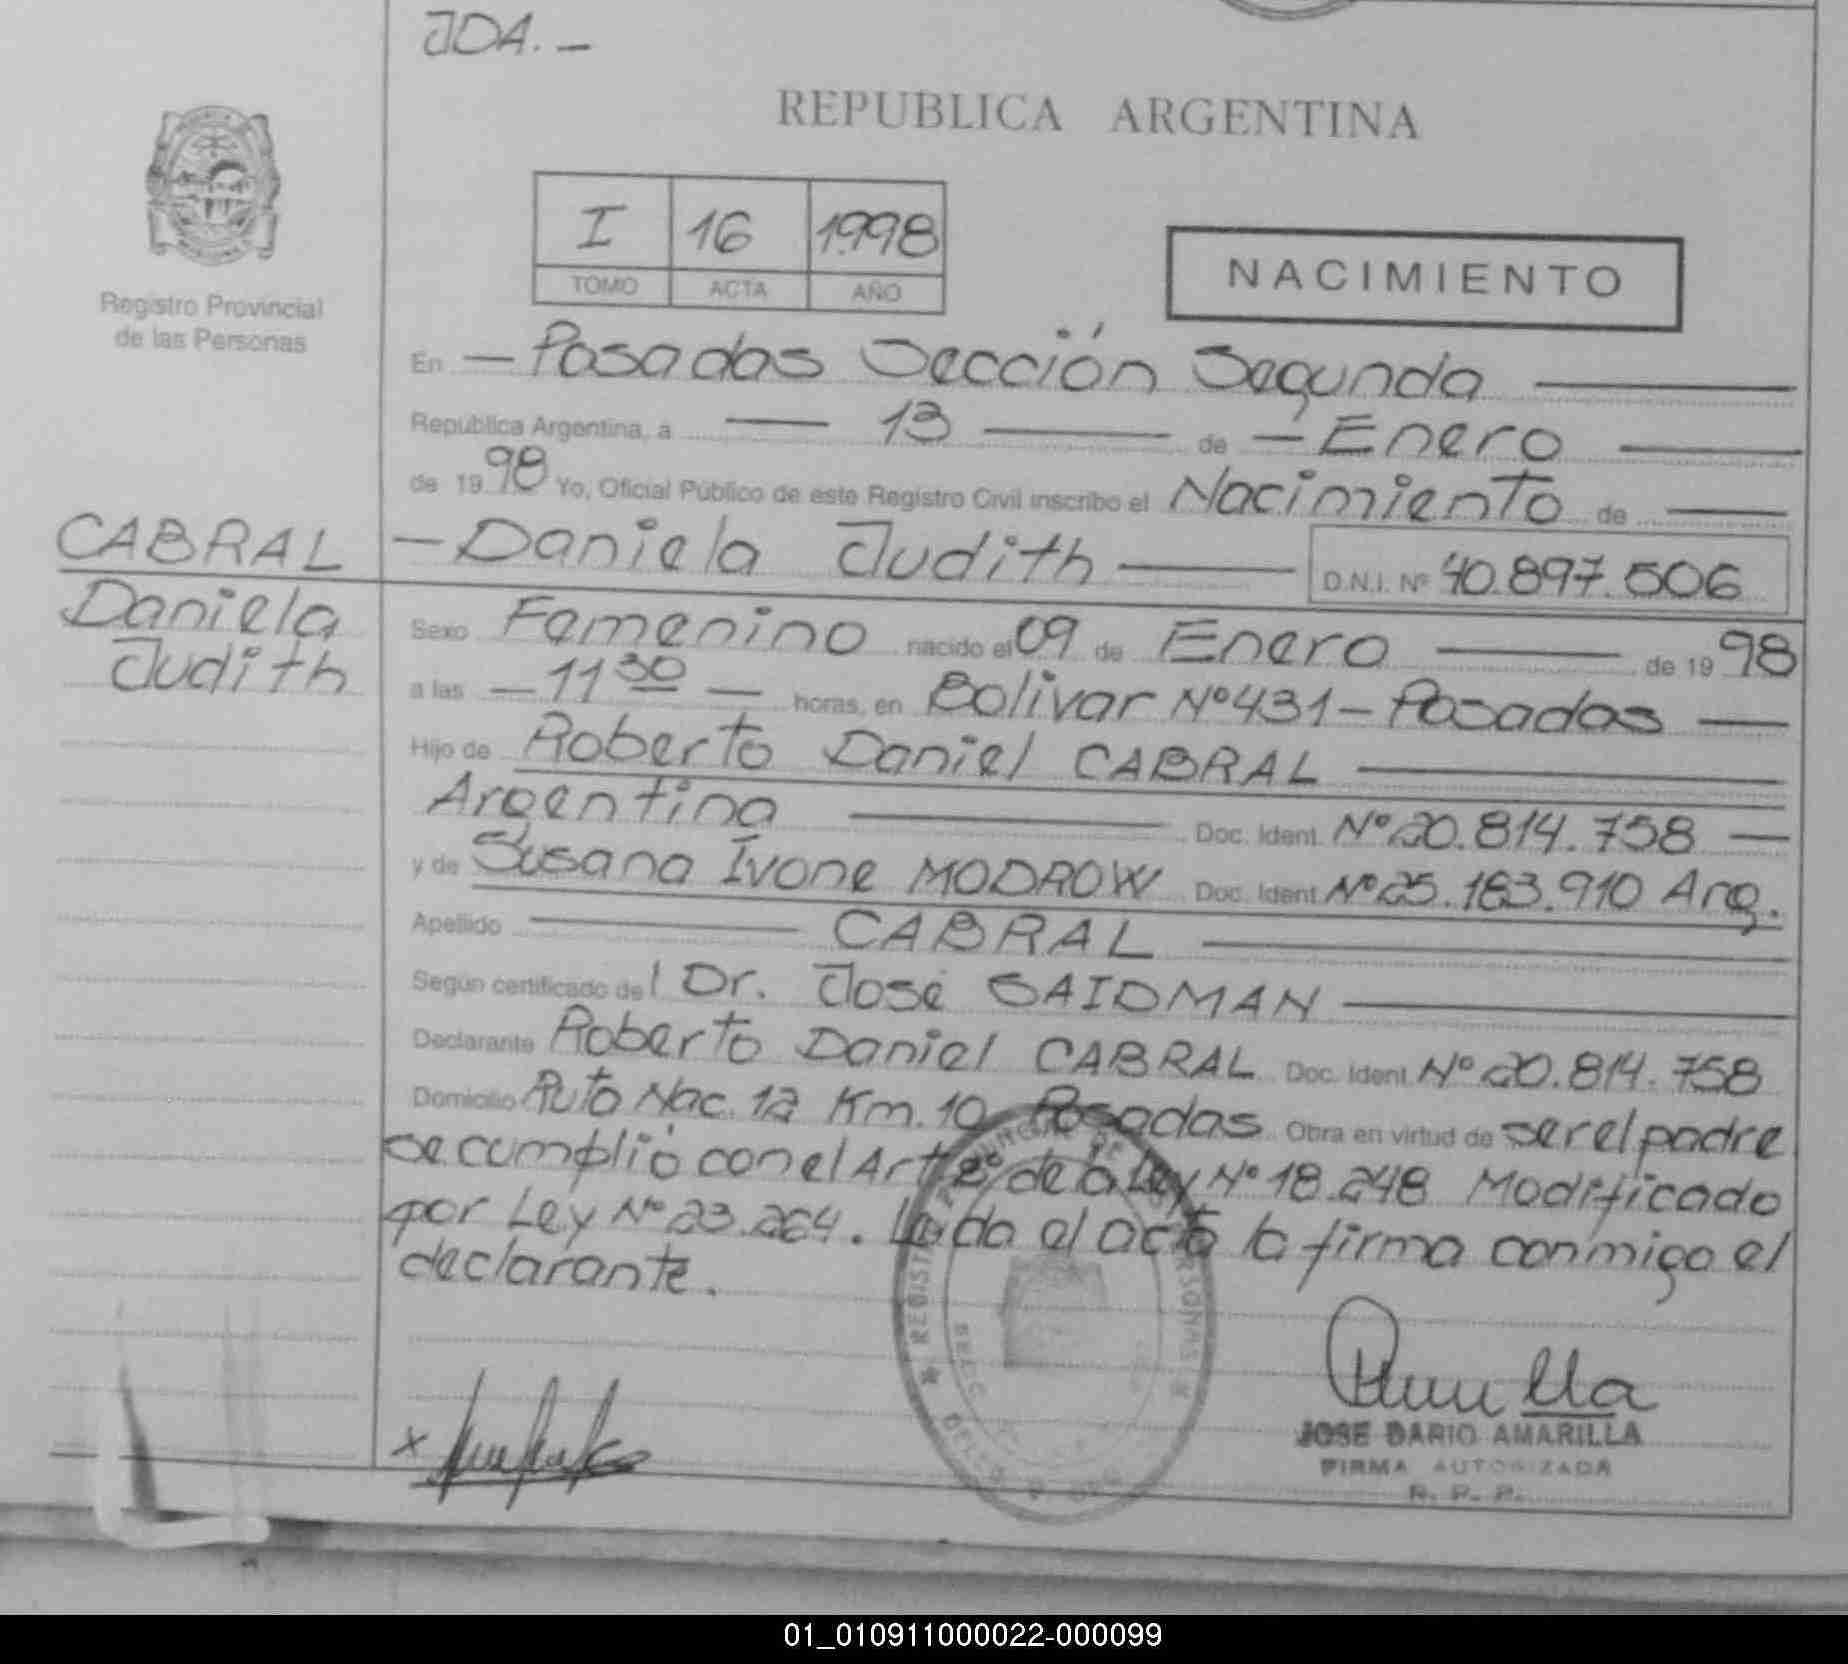 JDA.-
REPUBLICA ARGENTINA
I 16 1998
TOMO ACTA AÑO
NACIMIENTO
Registro Provincial
de las Personas
En - Posadas Sección Segunda
Republica Argentina, a 13 de - Enero
de 1998 Yo, Oficial Público de este Registro Civil inscribo el Nacimiento de
CABRAL
Daniela
Judith
- Daniela Judith D.N.I. Nº 40.897.506
Sexo Femenino nacido el 09 de Enero de 1998
a las - 11 30 - horas, en Bolivar Nº 431 - Posadas
Hijo de Roberto Daniel CABRAL
Argentina Doc. Ident. Nº 20.814.758
y de Susana Ivone MODROW Doc. Ident Nº 25.183.910 Arg.
Apellido CABRAL
Según certificado del Dr. José SAIDMAN
Declarante Roberto Daniel CABRAL Doc. Ident. Nº 20.814.758
Domicilio Ruta Nac. 12 Km. 10 Posadas Obra en virtud de ser el padre
se cumplió con el Art 2º de la Ley Nº 18.248 Modificado
por Ley Nº 23.264. Leida el acta la firma conmigo el
declarante.
x
JOSE DARIO AMARILLA
FIRMA AUTORIZADA
R. P. P.
01_010911000022-000099